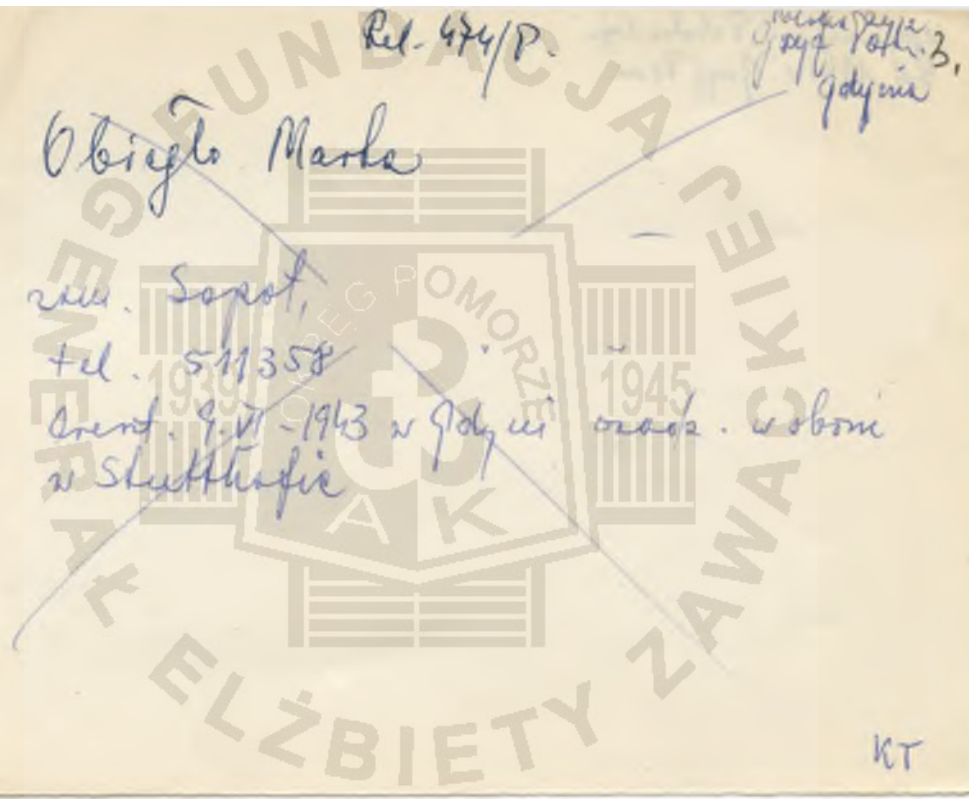 Rel. 474/P.
Gryf Pom. 3.
Gdynia
Obiegło Marta
zam. Sopot,
tel. 511358
Arerzt. 9.VI-1943 w Gdyni osadz. w obozie
w Stutthofie
KT
FUNDACJA GENERAŁ ELŻBIETY ZAWACKIEJ
OKRĘG POMORZE
1939 1945
AK